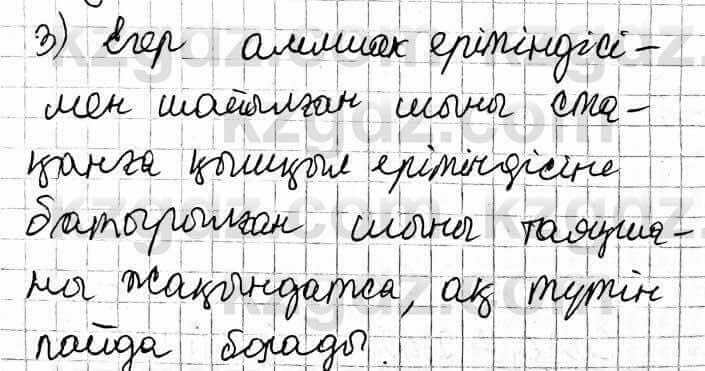 3) Егер аммиак ерітіндісі-
мен шайылған шыны ста-
қанға қышқыл ерітіндісіне
батырылған шыны таяқша-
ны жақындатса, ақ түтін
пайда болады.